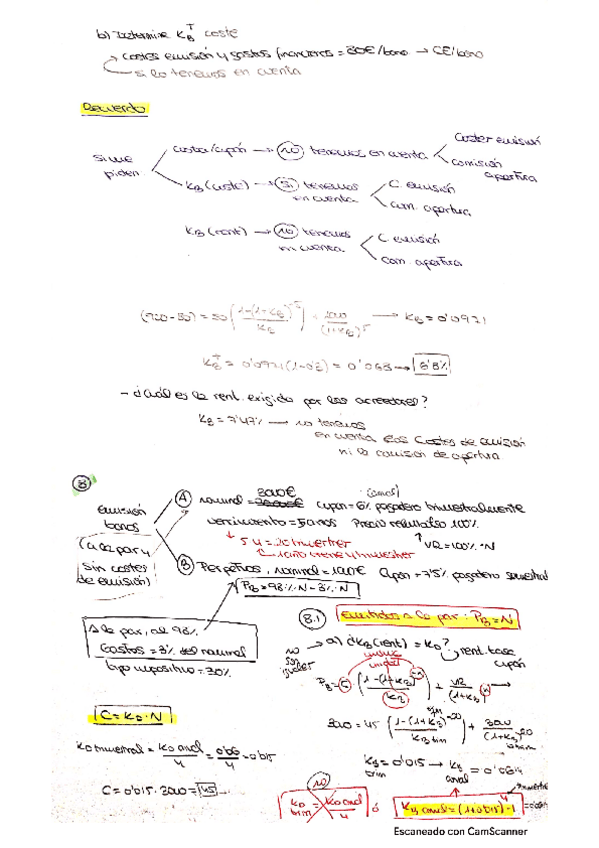 b) Determine K_B^T coste
→ costes emisión y gastos financieros = 30€/bono → CE/bono
si lo tenemos en cuenta
Recuerdo
si me piden
coste/cupón → NO tenemos en cuenta
Costes emisión
comisión apertura
K_B (coste) → SI tenemos en cuenta
C. emisión
com. apertura
K_B (rent) → NO tenemos en cuenta
C. emisión
com. apertura
K_B = 0'0921
K_B^T = 0'0921 (1-0'3) =
- ¿Cuál es la rent. exigida por los acreedores?
K_B = 7'47% → no tenemos
en cuenta los costes de emisión
ni la comisión de apertura
emisión bonos
(a la par y sin costes de emisión)
A nominal = 3000€ cupón = 6% pagadero trimestralmente
vencimiento = 5 años Precio reembolso 100%
↑ VR = 100% · N
1 año tiene 4 trimestres
B Perpetuos, nominal = 1000€ Cupón = 7'5% pagadero semestral
P_B = 98% · N - 3% · N
A la par, al 98%
Costos = 3% del nominal
tipo impositivo = 30%
B.1 Emitidos a la par: P_B = N
a) ¿K_B (rent) = K_D?
no son iguales
rent. base cupón
C = K_D · N
K_D trimestral = K_D anual / 4 = 0'06 / 4 = 0'015
C = 0'015 · 3000 = 45
3000 = 45 (1-(1+K_B)^-20 / K_B trim) + 3000 / (1+K_B)^20
K_B trim = 0'015 → K_B anual = 0'0614
NO
K_D trim = K_D anual / 4
ó
K_B anual = (1+0'015)^4 - 1
Escaneado con CamScanner